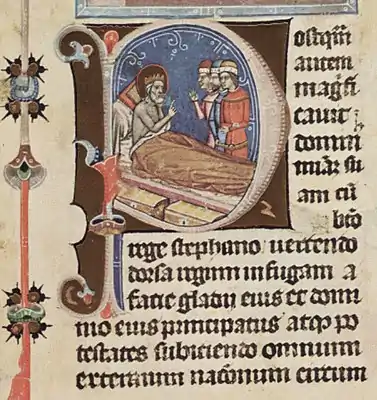 ostqͫ
autem
magͥfi
cauit
domiͥ
miaͫ su
am cū
bͭo
rege stephano uertendo
dorsa regum in fugam a
facie gladij eius et domi
nio eius principatus atqꝫ po
testates subiciendo omnium
externum nacōnum circum